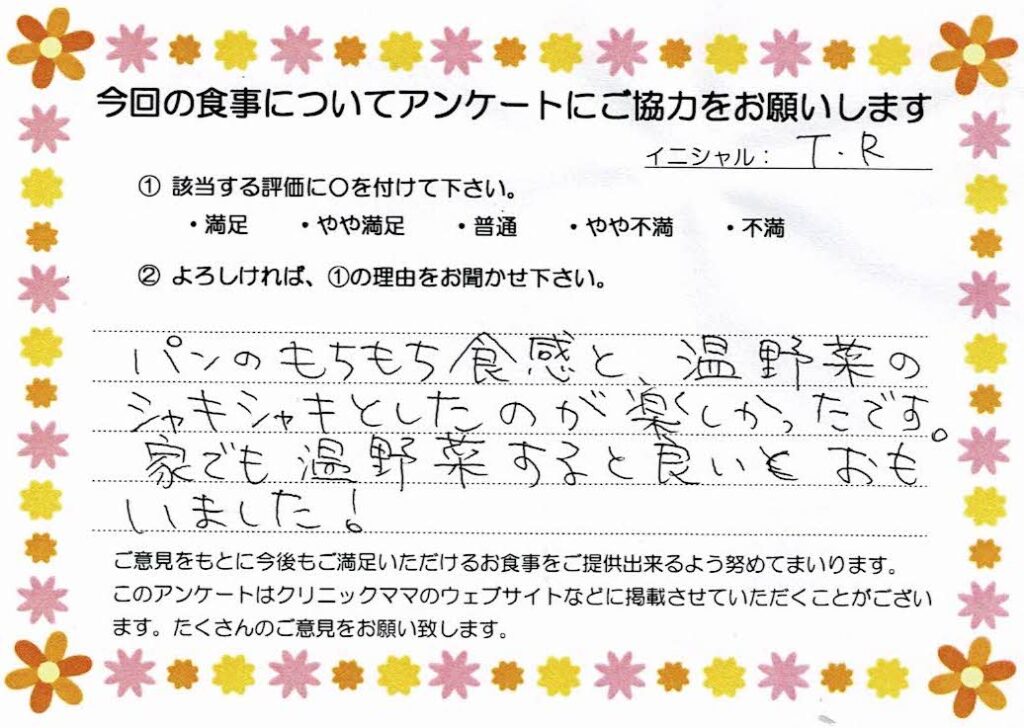 今回の食事についてアンケートにご協力をお願いします
イニシャル： T.R
① 該当する評価に○を付けて下さい。
・満足 ・やや満足 ・普通 ・やや不満 ・不満
② よろしければ、①の理由をお聞かせ下さい。
パンのもちもち食感と、温野菜の
シャキシャキとしたのが楽しかったです。
家でも温野菜すると良いとおも
いました！
ご意見をもとに今後もご満足いただけるお食事をご提供出来るよう努めてまいります。
このアンケートはクリニックママのウェブサイトなどに掲載させていただくことがござい
ます。たくさんのご意見をお願い致します。